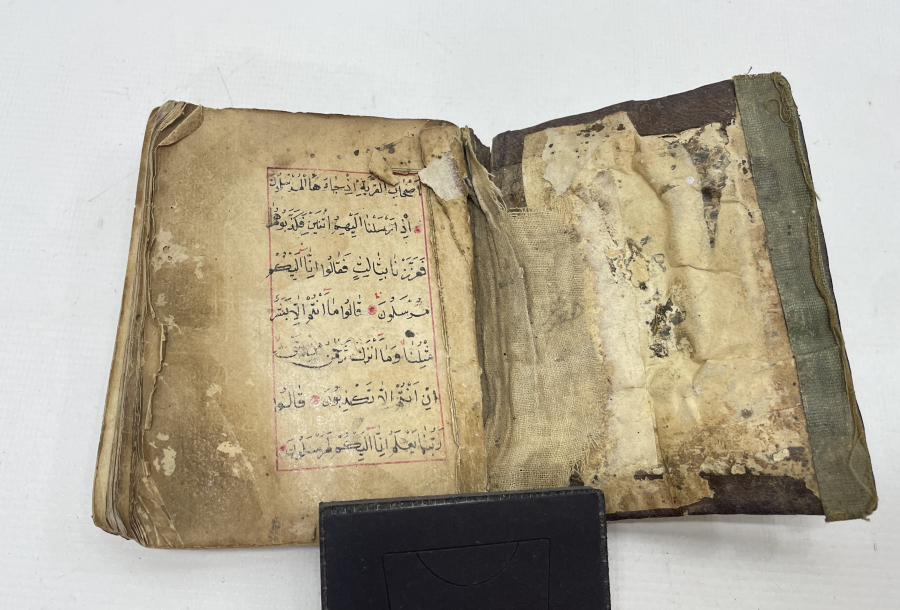 اَصْحَابَ الْقَرْيَةِ اِذْ جَاءَهَا الْمُرْسَلُونَ
اِذْ اَرْسَلْنَا اِلَيْهِمُ اثْنَيْنِ فَكَذَّبُوهُمَا
فَعَزَّزْنَا بِثَالِثٍ فَقَالُوا اِنَّا اِلَيْكُمْ
مُرْسَلُونَ قَالُوا مَا اَنْتُمْ اِلَّا بَشَرٌ
مِثْلُنَا وَمَا اَنْزَلَ الرَّحْمٰنُ مِنْ شَيْءٍ
اِنْ اَنْتُمْ اِلَّا تَكْذِبُونَ قَالُوا
رَبُّنَا يَعْلَمُ اِنَّا اِلَيْكُمْ لَمُرْسَلُونَ